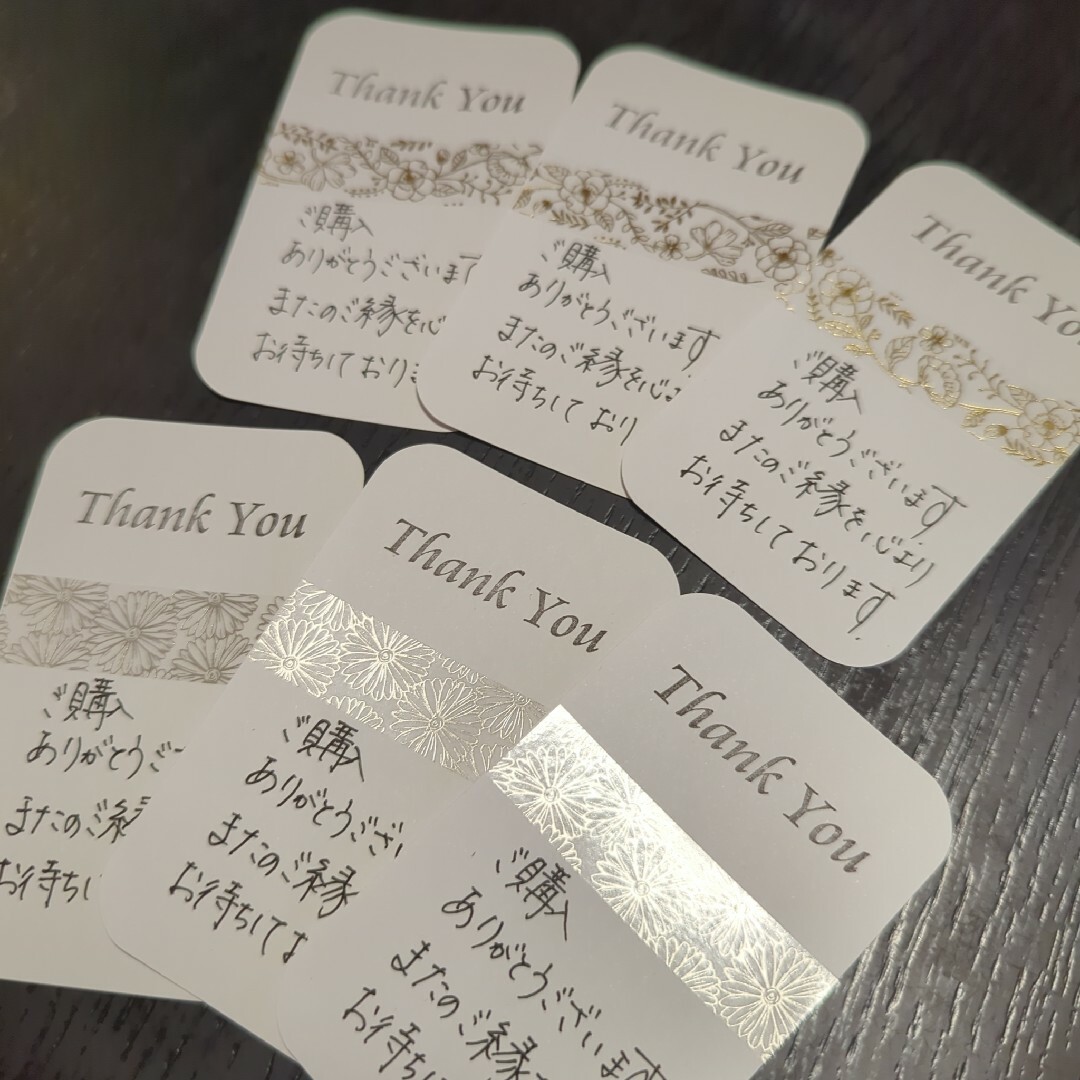 Thank You
ご購入
ありがとうございます
またのご縁を心
お待ちしており
Thank You
ご購入
ありがとうございます
またのご縁を心
お待ちしており
Thank You
ご購入
ありがとうございます
またのご縁を心より
お待ちしております。
Thank You
ご購入
ありがとうご
またのご縁
お待ちし
Thank You
ご購入
ありがとうござい
またのご縁
お待ちして
Thank You
ご購入
ありがとうございます
またのご縁を
お待ちして